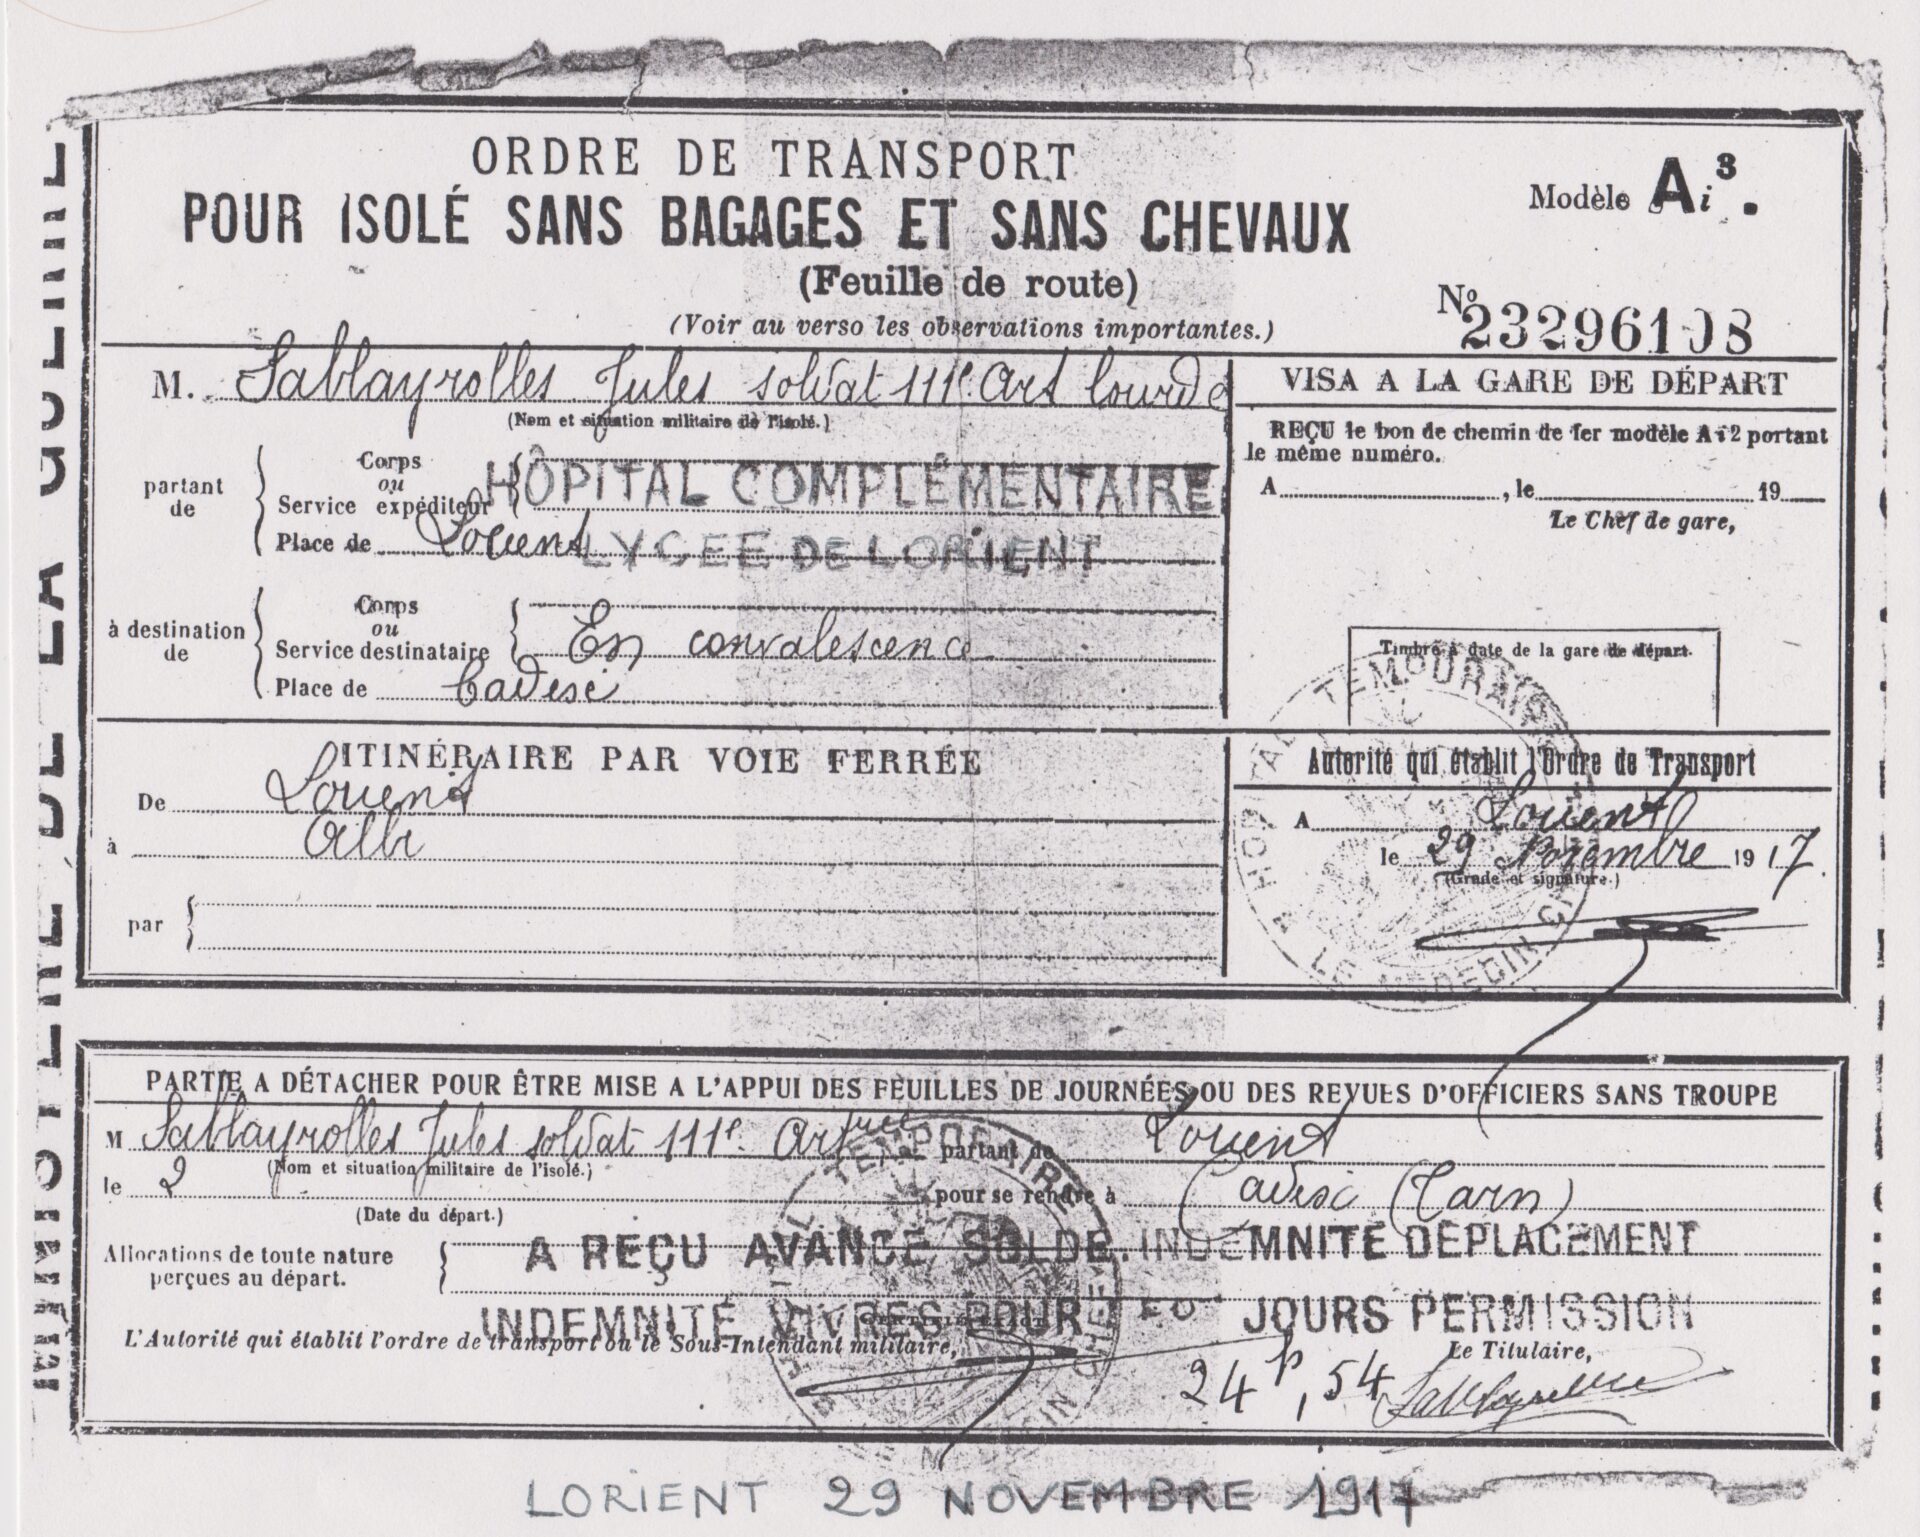 ORDRE DE TRANSPORT
POUR ISOLÉ SANS BAGAGES ET SANS CHEVAUX
(Feuille de route)
(Voir au verso les observations importantes.)
Modèle Ai³.
No 23296108
M. Sablayrolles Jules soldat 111e Art lourde
(Nom et situation militaire de l'isolé.)
partant de
Corps ou Service expéditeur HÔPITAL COMPLÉMENTAIRE
Place de Lorient LYCEE DE LORIENT
à destination de
Corps ou Service destinataire En convalescence
Place de Cadesc
VISA A LA GARE DE DÉPART
REÇU le bon de chemin de fer modèle Ai2 portant
le même numéro.
A , le 19
Le Chef de gare,
Timbre à date de la gare de départ.
ITINÉRAIRE PAR VOIE FERRÉE
De Lorient
à Albi
par
Autorité qui établit l'Ordre de Transport
A Lorient
le 29 Novembre 1917.
(Grade et signature.)
LE MÉDECIN CHEF
PARTIE A DÉTACHER POUR ÊTRE MISE A L'APPUI DES FEUILLES DE JOURNÉES OU DES REVUES D'OFFICIERS SANS TROUPE
M Sablayrolles Jules soldat 111e Artrie partant de Lorient
(Nom et situation militaire de l'isolé.)
le 2 pour se rendre à Cadesc (Tarn)
(Date du départ.)
Allocations de toute nature
perçues au départ.
A REÇU AVANCE SOLDE, INDEMNITÉ DÉPLACEMENT
INDEMNITÉ VIVRES POUR JOURS PERMISSION
L'Autorité qui établit l'ordre de transport ou le Sous-Intendant militaire,
Le Titulaire,
24f,54
Sablayrolles
LORIENT 29 NOVEMBRE 1917